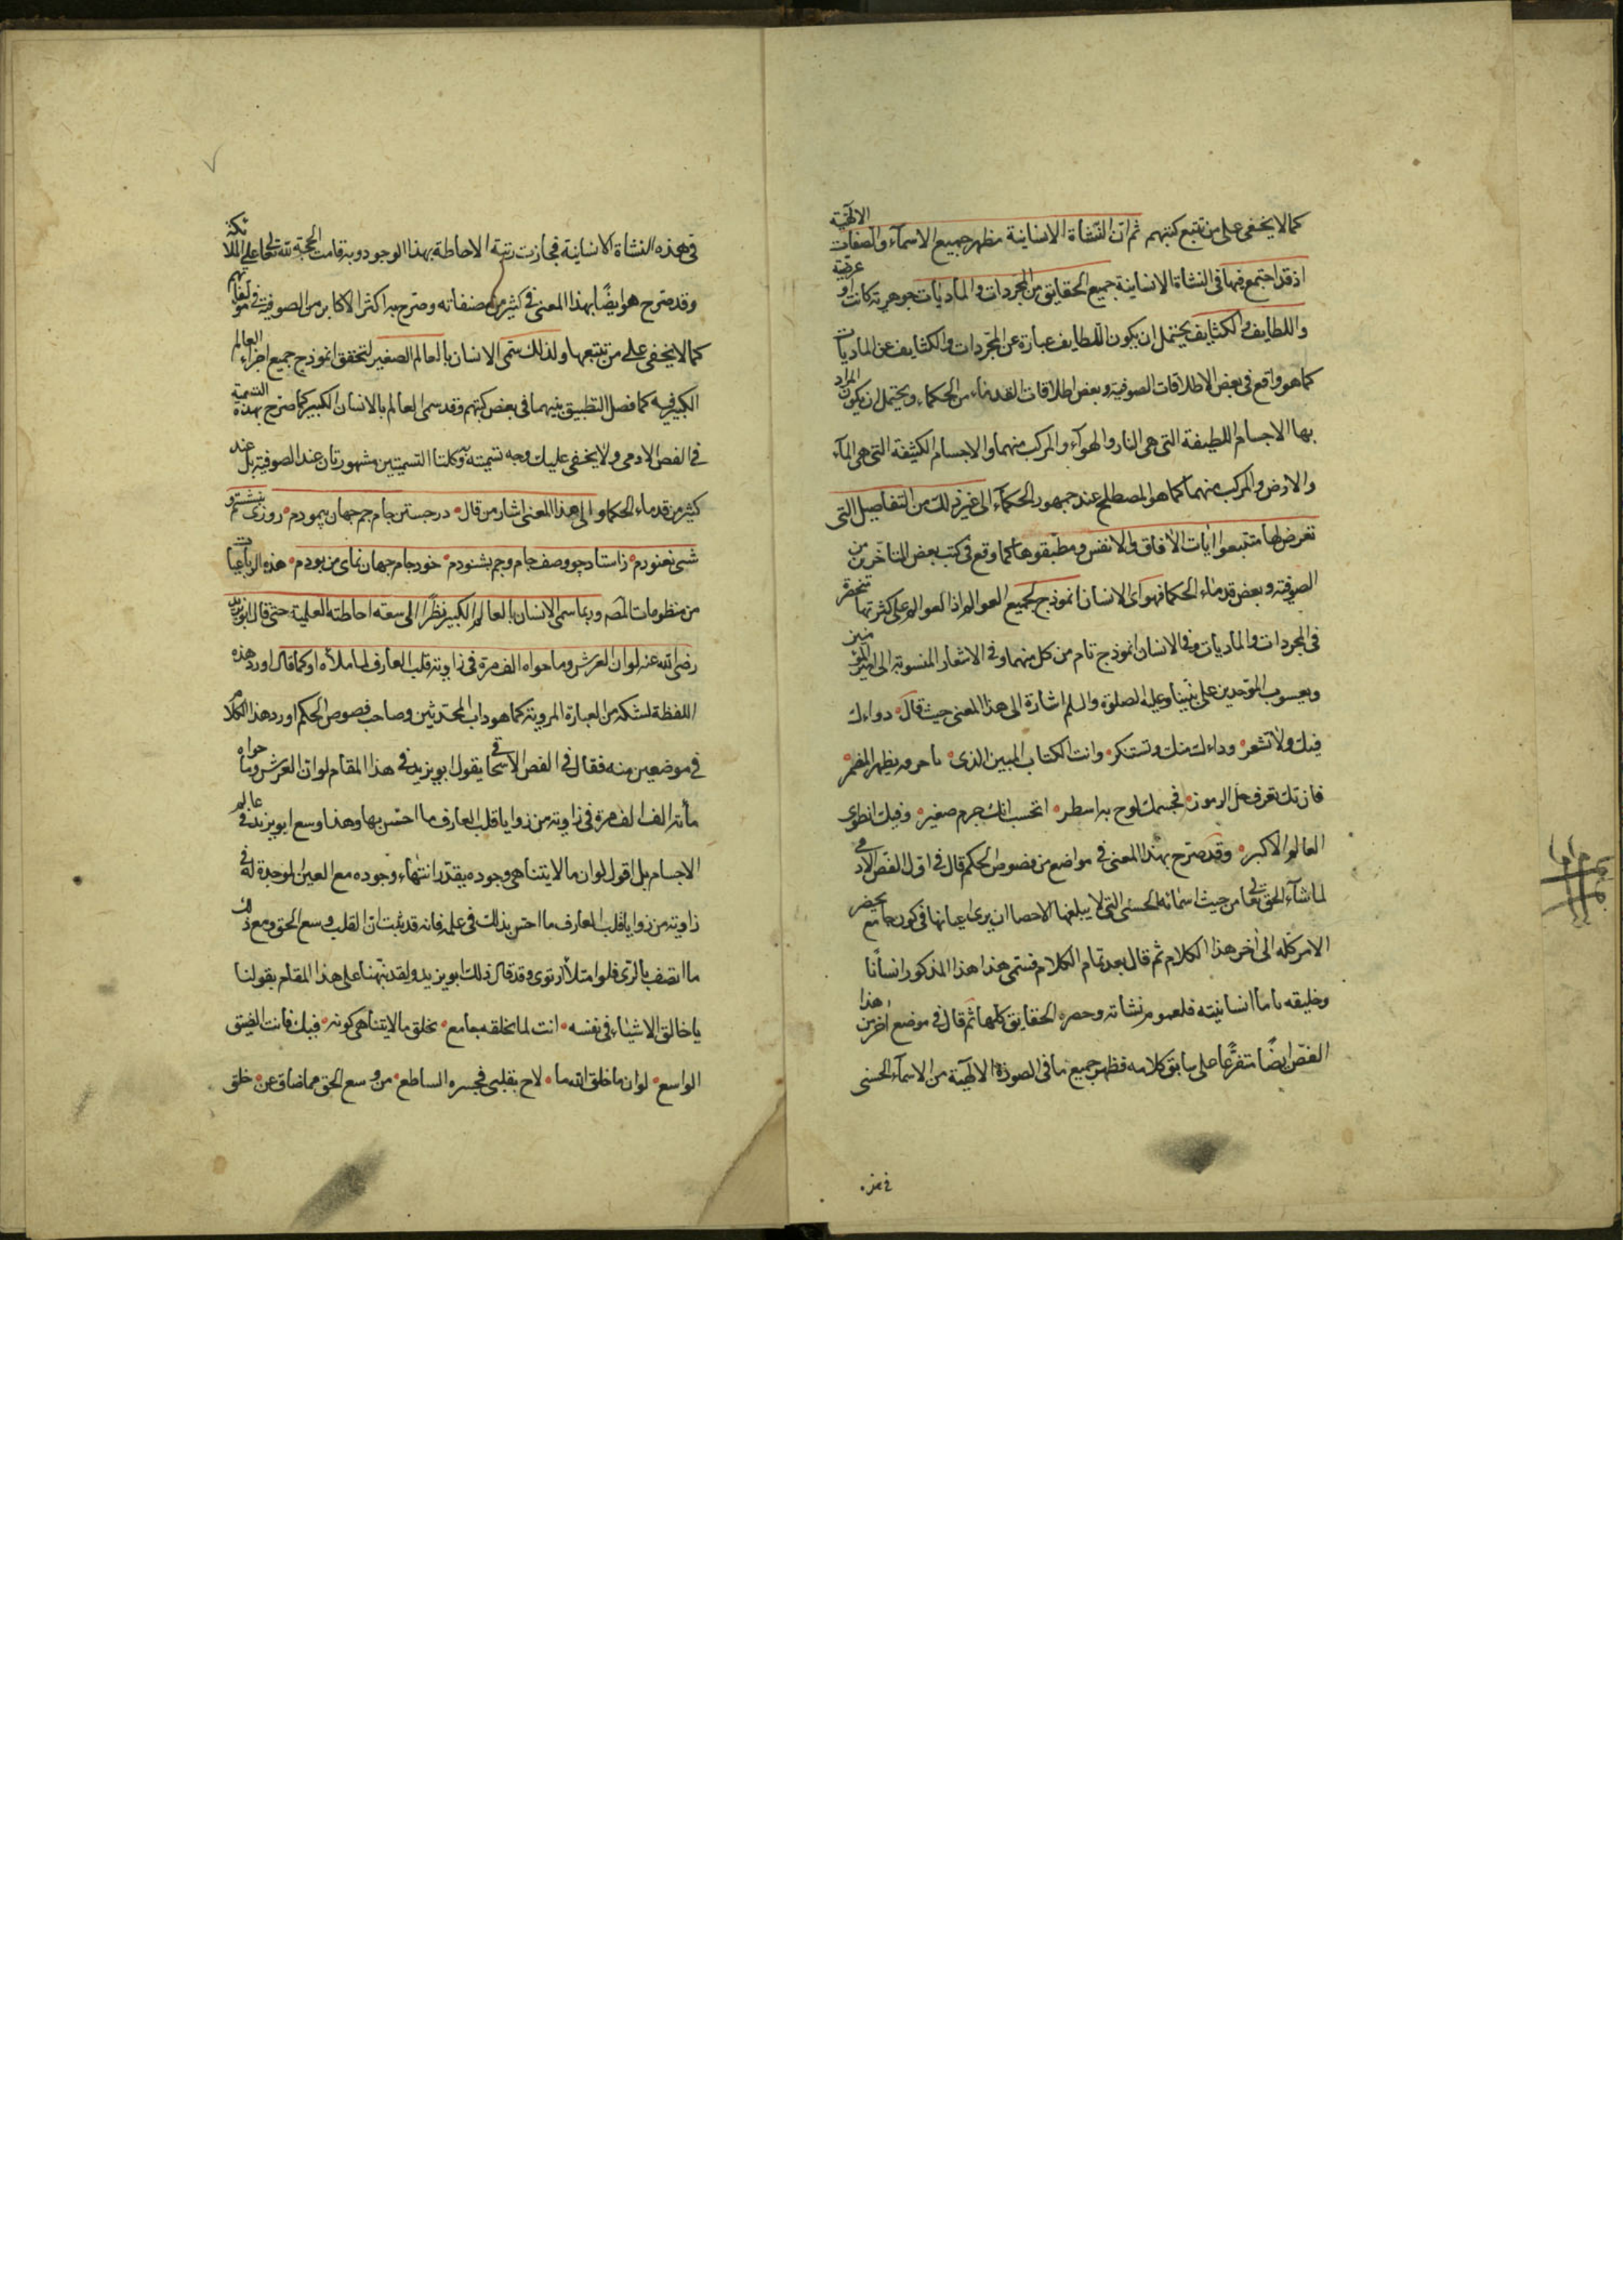 كما لا يخفى على من تتبع كتبهم ثم ان النشأة الانسانية مظهر جميع الاسمآء والصفات الالهية
اذ قد اجتمع فيها في النشأة الانسانية جميع الحقايق من المجردات والماديات جوهرية كانت او عرضية
واللطايف والكثايف يحتمل ان يكون اللطايف عبارة عن المجردات والكثايف عن الماديات
كما هو واقع في بعض الاطلاقات الصوفية وبعض اطلاقات القدماء من الحكماء ويحتمل ان يكون المراد
بها الاجسام اللطيفة التى هى النار والهوآء والمركب منهما والاجسام الكثيفة التى هى المآء
والارض والمركب منهما كما هو المصطلح عند جمهور الحكمآء الى غير ذلك من التفاصيل التى
تعرض لها متتبعوا ايات الافاق والانفس ومطبقوها كما وقع في كتب بعض المتأخرين من
الصوفية وبعض قدماء الحكما فهو اى الانسان انموذج لجميع العوالم اذا العوالم على كثرتها منحصرة
في المجردات والماديات وفي الانسان انموذج تام من كل منهما وفي الاشعار المنسوبة الى امير المؤمنين
ويعسوب الموحدين على نبينا وعليه الصلوة والسلم اشارة الى هذا المعنى حيث قال دواءك
فيك ولا تشعر وداءك منك وتستنكر وانت الكتاب المبين الذى باحرفه يظهر المضمر
فان تك تعرف حل الرموز فجسمك لوح به اسطر اتحسب انك جرم صغير وفيك انطوى
العالم الاكبر وقد صرح بهذا المعنى في مواضع من فصوص الحكم قال في اول الفص الادمى
لما شآء الحق تعالى من حيث اسمائه الحسنى التى لا يبلغها الاحصا ان يرى اعيانها في كون جامع يحصر
الامر كله الى اخر هذا الكلام ثم قال بعد تمام الكلام فسمى هذا هذا المذكور انسانا
وخليفه فاما انسانيته فلعموم نشاته وحصره الحقايق كلها ثم قال في موضع اخر من هذا
الفص ايضا متفرعا على سابق كلامه فظهر جميع ما في الصورة الالهية من الاسمآء الحسنى
في هذه النشأة الانسانية فحازت رتبة الاحاطة بهذا الوجود وبه قامت الحجة لله تعالى على الملائكة
وقد صرح هو ايضا بهذا المعنى في كثير من مصنفاته وصرح به اكثر الاكابر من الصوفية في مؤلفاتهم
كما لا يخفى على من تتبعها ولذلك سمى الانسان بالعالم الصغير لتحقق انموذج جميع اجزاء العالم
الكبير فيه كما فصل التطبيق بينهما في بعض كتبهم وقد سمى العالم بالانسان الكبير كما صرح بهذه التسمية
في الفص الادمى ولا يخفى عليك وجه تسميته وكلتا التسميتين مشهورتان عند الصوفية بل عند
كثير من قدماء الحكما والى هذا المعنى اشار من قال در جستن جام جم جهان پيمودم روزى ننشستم و
شبى نغنودم ز استاد چو وصف جام وجم بشنودم خود جام جهان نماى من بودم هذه الرباعيات
من منظومات المص وربما سمى الانسان بالعالم الكبير نظرا الى سعة احاطته العلمية حتى قال ابو يزيد
رضى الله عنه لو ان العرش وما حواه الف مرة في زاوية قلب العارف لما ملأه او كما قال اورد هذه
اللفظة لشكه من العبارة المروية كما هو داب المحدثين وصاحب فصوص الحكم اورد هذا الكلام
في موضعين منه فقال في الفص الاسحاقى يقول ابو يزيد في هذا المقام لو ان العرش وما حواه
مأته الف الف مرة في زاوية من زوايا قلب العارف ما احس بها وهذا وسع ابو يزيد في عالم
الاجسام بل اقول لو ان ما لا يتناهى وجوده يقدر انتهاء وجوده مع العين الموجدة له في
زاوية من زوايا قلب العارف ما احس بذلك في علمه فانه قد ثبت ان القلب وسع الحق ومع ذلك
ما اتصف بالرى فلو امتلأ ارتوى وقد قال ذلك ابو يزيد ولقد نبهنا على هذا المقام بقولنا
يا خالق الاشياء في نفسه انت لما تخلقه جامع تخلق ما لا يتناهى كونه فيك فانت الضيق
الواسع لو ان ما خلق الله ما لاح بقلبى فجره الساطع من وسع الحق فما ضاق عن خلق